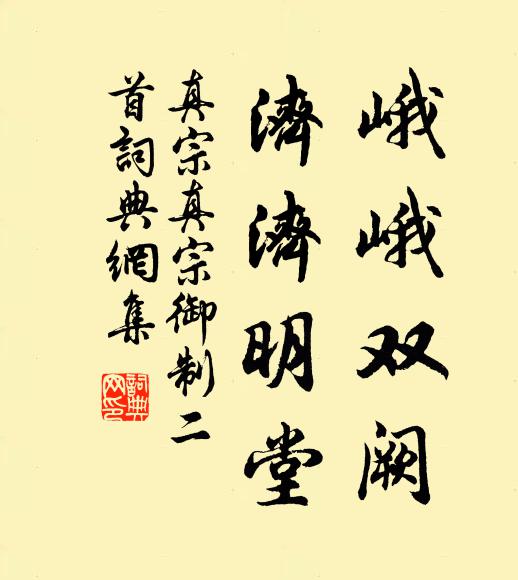 峨峨双阙
濟濟明堂
真宗真宗御制二
首詞典網集
詞典
网印